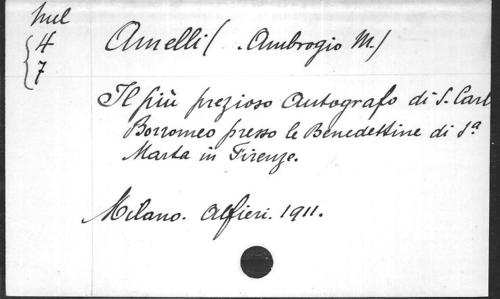 Mel
4
7
Amelli (. Ambrogio M.)
Il più prezioso Autografo di S. Carl
Borromeo presso le Benedettine di Sª
Marta in Firenze.
Milano. Alfieri. 1911.